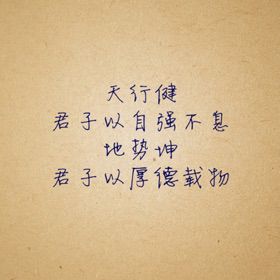 天行健
君子以自强不息
地势坤
君子以厚德载物